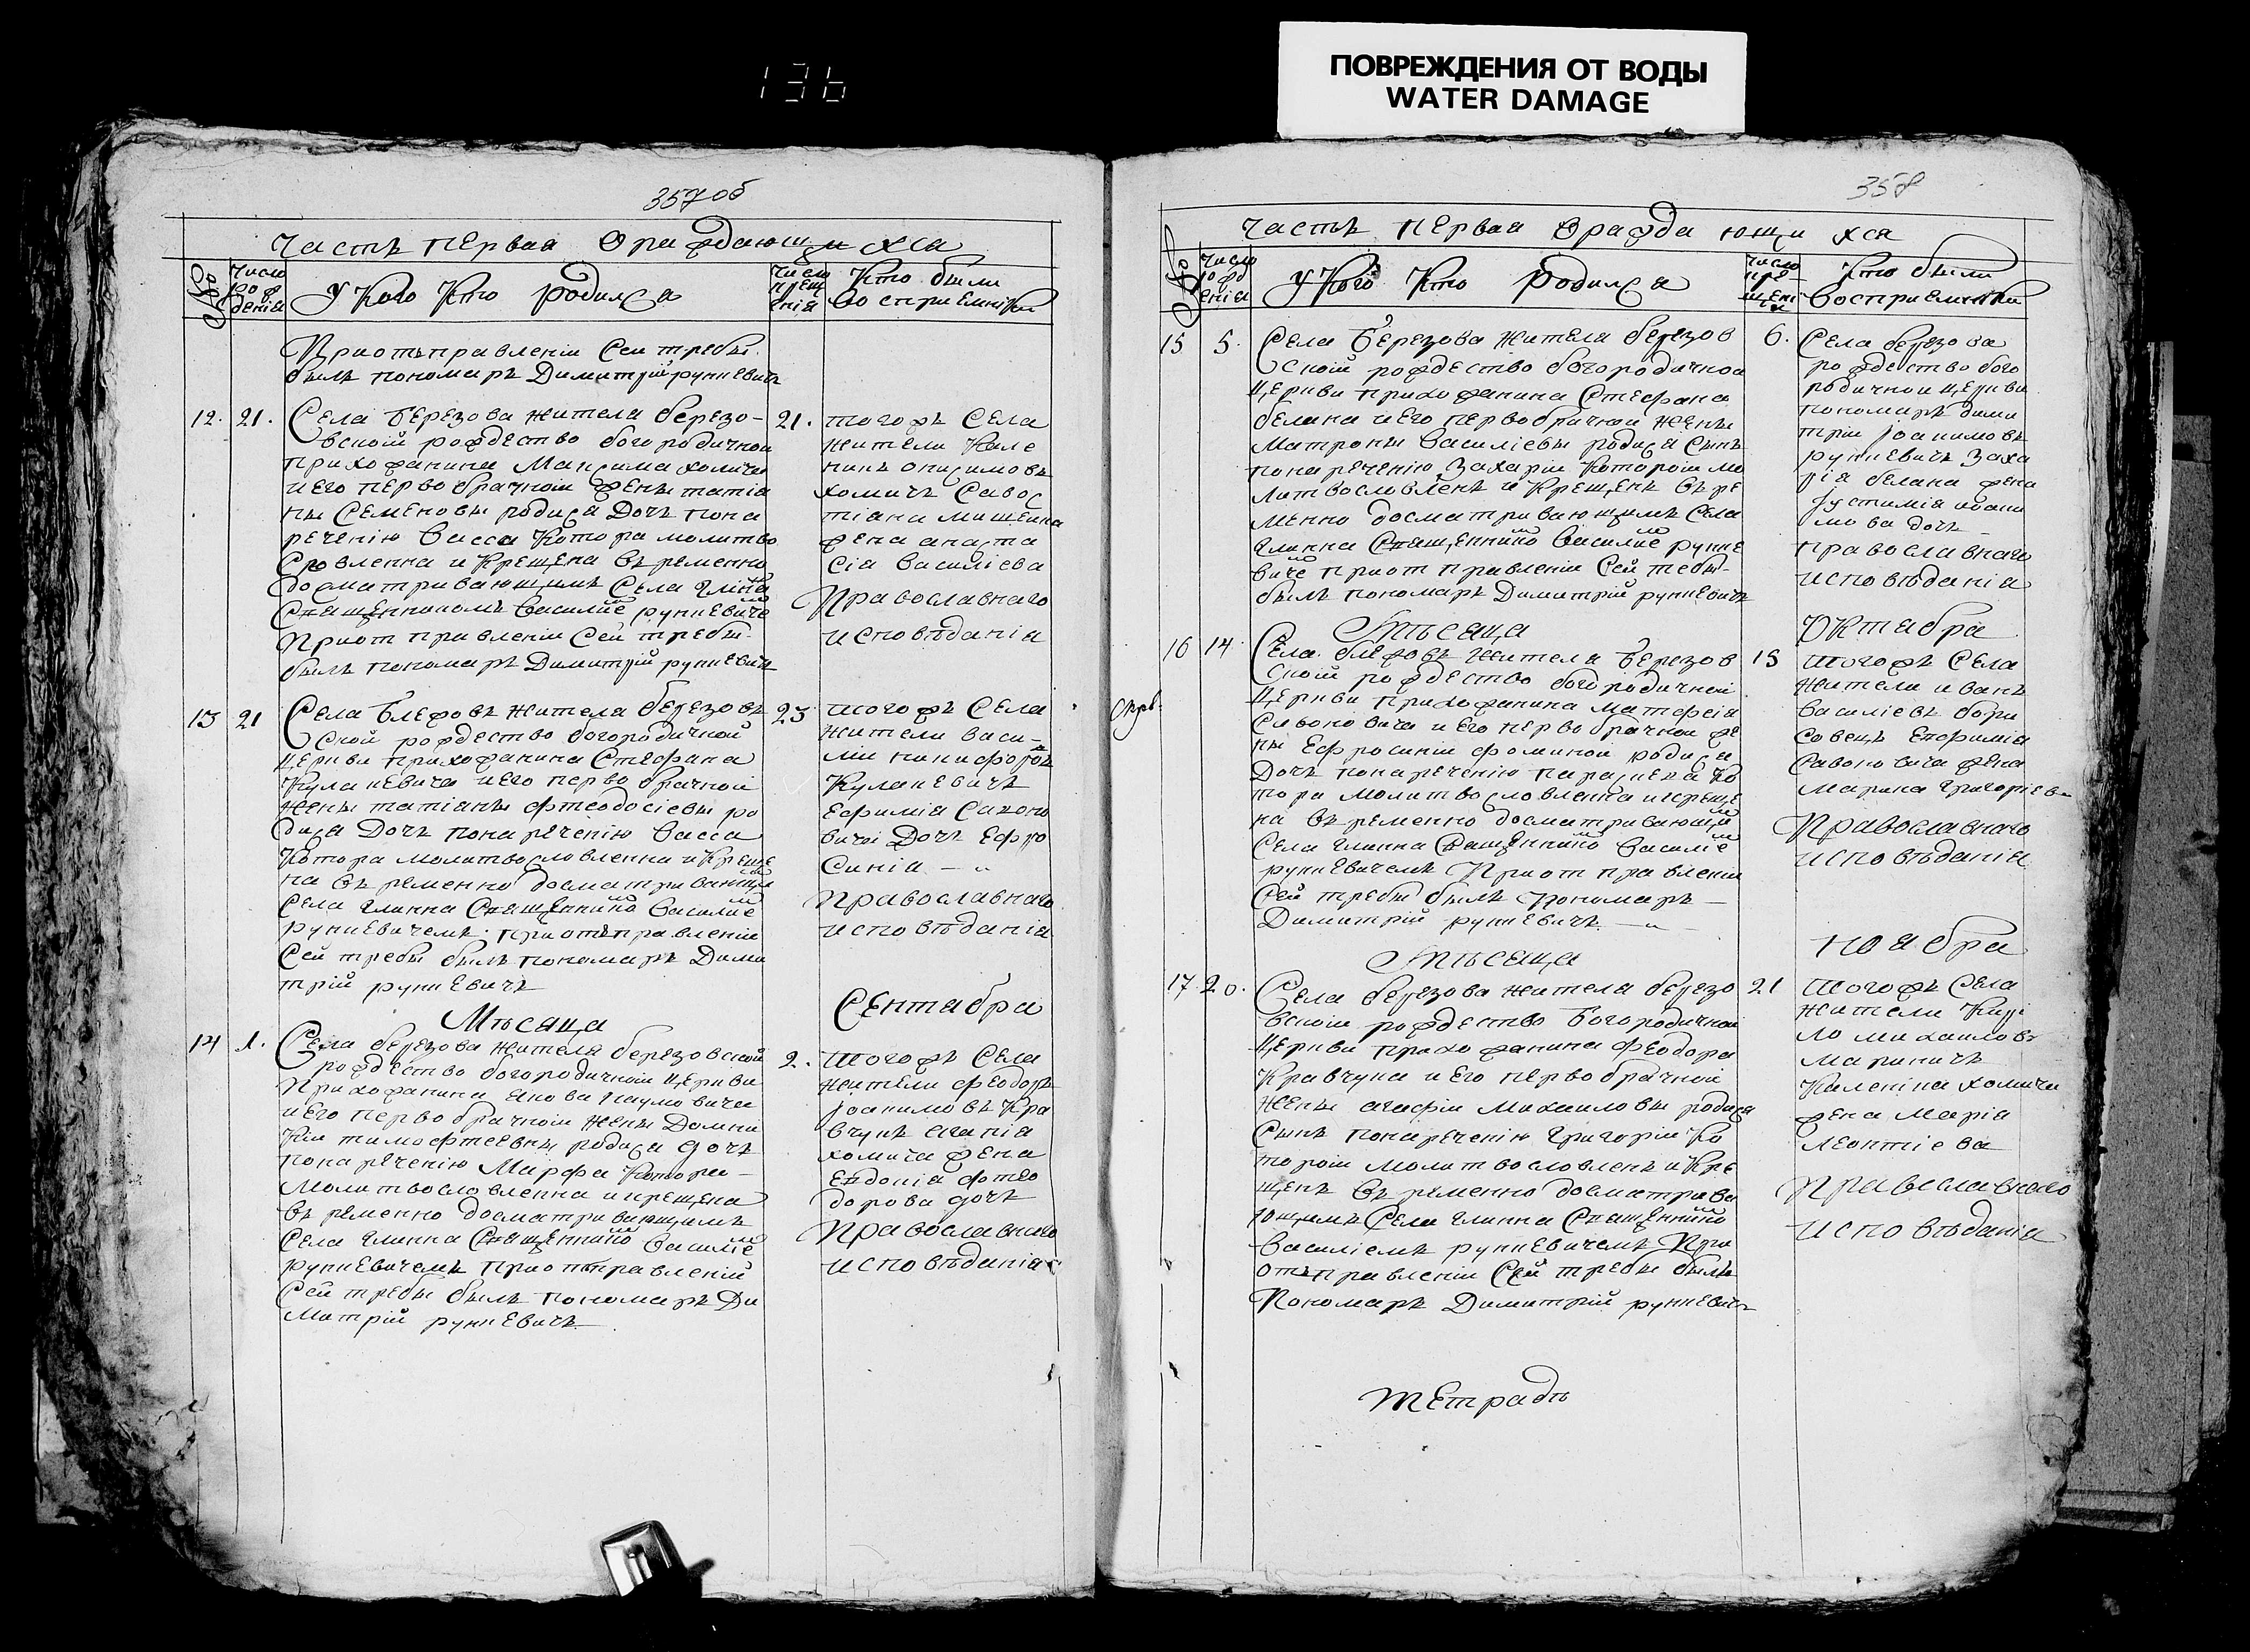 136
ПОВРЕЖДЕНИЯ ОТ ВОДЫ
WATER DAMAGE
357об
Часть первая О раждающихся
число рождения
У Кого Кто родился
число крещения
Кто были восприемники
При отъправленіи Сеи требы
былъ пономаръ Димитрій рункевичъ
12. 21.
Села Березова жителя березо-
вской рождество богородичной
прихожанина Максима хомича
и его первобрачной жены татіа
ны Семеновы родися Дочь пона
реченію Васса Котора молитво
словленна и Крещена въременно
досматривающимъ Села Глинна
Священникомъ Василіе рункевиче
При от правленіи Сей требы
былъ пономаръ Димитрій рункевичъ
21.
тогожъ Села
жители Кале
никъ онисимовъ
хомичъ Савос
тіана мишейка
жена анаста
сія василіева
Православнаго
исповѣданія
13 21
Села Блежовъ жителя березовъ
Ской рождество богородичной
Церкви прихожанина Стефана
Кулакевича и его перво брачной
жены татіаны фтеодосіевы ро
дися Дочь понаречению Васса
Котора молитвословленна и Креще
на въ ременно досматривающи
Села Глинна Священнико Василіе
рункевичемъ приотъправленіи
Сей требы былъ пономаръ Дими
трій рункевичъ
23
тогожъ Села
жители васи-
лій никифоровъ
Кулакевичъ
Ефимія Савоно
вичи Дочь Ефро
синія
Православнаго
исповѣданія
Мѣсяца Сентября
14 1.
Села березова жителя березовской
рождество богородичной Церкви
Прихожанина якова наумовича
и его первобрачной жены Домни
кіи тимофтеевны родися дочь
понаречению Марфа Котора
молитвословленна и крещена
въ ременно досматривающимъ
Села Глинна Священнико Василіе
рункевичемъ приотправленіи
Сей требы былъ пономаръ Ди
митрій рункевичъ
2.
тогожъ Села
жители феодоръ
Іоакимовъ Кра
вчукъ агапія
хомича жена
Евдокія фтео
дорова дочь
Православнаго
исповѣданія
358
часть первая О раждающихся
число рождения
У Кого Кто родился
число крещения
Кто были восприемники
15 5.
Села Березова жителя березов
Ской рождество богородичной
Церкви прихожанина Стефана
белана и его первобрачной жены
Матроны Василіевы родися Сынъ
понаречению Захарій Которой мо
литвословленъ и Крещенъ въ ре
менно досматривающимъ Села
Глинна Священнико Василие рунке
виче приот правленіи Сей требы
былъ пономаръ Димитрій рункевичъ
6.
Села березова
рождество бого
родичной церкви
пономаръ дими
трій Іоакимовъ
рункевичъ Заха
рія белана жена
Іустимія
мова дочь
православнаго
исповѣданія
Мѣсяца Октября
16 14
Села блежовъ жителя Березов
Ской рождество богородичной
Церкви прихожанина Матфеія
Савоновича и его первобрачной же
ны Ефросиніи фоминой родися
Дочь понаречению параскева Ко
тора молитвословленна и креще
на въ ременно досматривающи
Села Глинна Священнико Василіе
рункевичемъ Приот правленіи
Сей требы былъ Пономаръ
Димитрій рункевичъ
15
тогожъ Села
жители иванъ
василіевъ бори
совецъ Епфимія
Савоновича жена
Марина григоріева
Православнаго
исповѣданія
Мѣсяца ноября
17 20.
Села березова жителя березо
вской рождество Богородичной
Церкви прихожанина Феодора
Кравчука и его первобрачной
жены агафіи Михаиловы родися
Сынъ понаречению Григорій Ко
торой молитвословленъ и Кре
щенъ въ ременно досматрива
ющимъ Села Глинна Священнико
Василіемъ рункевичемъ При
отъправленіи Сей требы былъ
Пономаръ Димитрій рункевичъ
21
тогожъ Села
жители Кири
ло михаиловъ
мариничъ
Каленика хомича
жена Марія
Леонтіева
Православнаго
исповѣданія
тетрадь